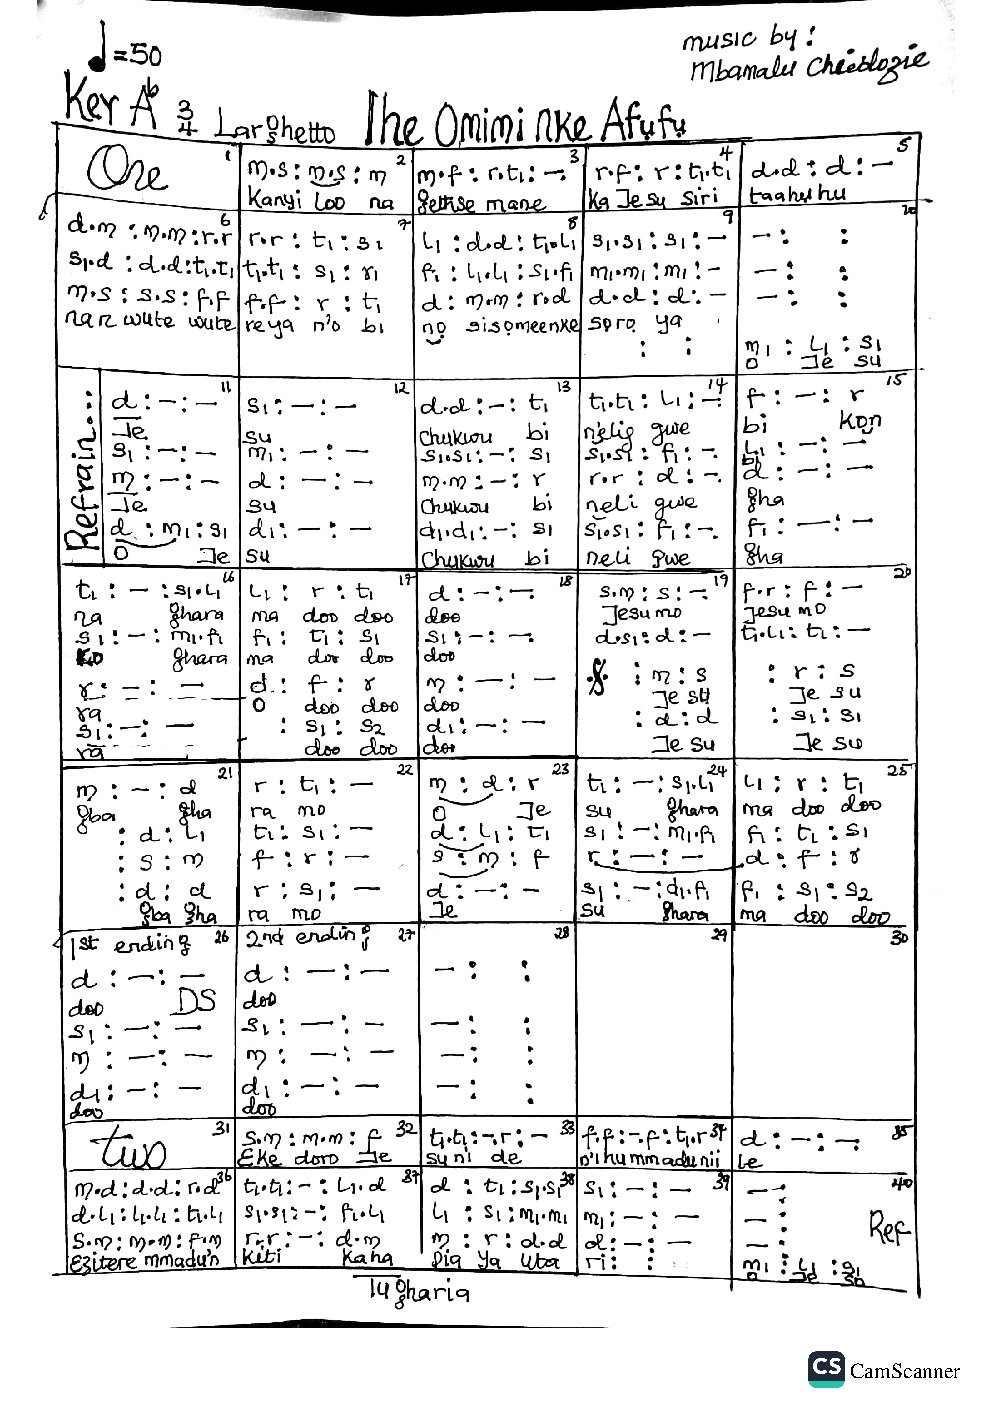 ♩=50
music by:
Mbamalu
Key Ab 3/4 Larghetto Ihe Omimi nke Afufu
One 1
2
m.s : m.s : m
Kanyi Loo na
3
m.f : r.t₁ : -.
gethse mane
4
r.f : r : t₁.t₁
Ka Jesu siri
5
d.d : d : -
taahuhu
6
d.m : m.m : r.r
s₁.d : d.d : t₁.t₁
m.s : s.s : f.f
nan wute wute
7
r.r : t₁ : s₁
t₁.t₁ : s₁ : r₁
f.f : r : t₁
reya n'o bi
8
l₁ : d.d : t₁.l₁
f₁ : l₁.l₁ : s₁.f₁
d : m.m : r.d
no sisomeenke
9
s₁.s₁ : s₁ : -
m₁.m₁ : m₁ : -
d.d : d : -
soro ya
: :
10
- : :
- : :
- : :
m₁ : l₁ : s₁
O Je su
Refrain...
11
d : - : -
Je
s₁ : - : -
m : - : -
Je
d : m₁ : s₁
O Je
12
s₁ : - : -
su
m₁ : - : -
d : - : -
su
d₁ : - : -
su
13
d.d : - : t₁
Chukwu bi
s₁.s₁ : - : s₁
m.m : - : r
Chukwu bi
d₁.d₁ : - : s₁
Chukwu bi
14
t₁.t₁ : l₁ : -.
n'elig gwe
s₁.s₁ : f₁ : -.
r.r : d : -.
neli gwe
s₁.s₁ : f₁ : -.
neli gwe
15
f : - : r
bi Kon
l₁ : - : -
bi
d : - : -
gha
f₁ : - : -
gha
16
t₁ : - : s₁.l₁
na ghara
s₁ : - : m₁.f₁
ko ghara
r : - : -
ra
s₁ : - : -
ra
17
l₁ : r : t₁
ma doo doo
f₁ : t₁ : s₁
ma doo doo
d : f : r
O doo doo
: s₁ : s₂
doo doo
18
d : - : -
doo
s₁ : - : -
doo
m : - : -
doo
d₁ : - : -
doo
19
s.m : s : -
Jesu mo
d.s₁ : d : -
𝄋 : m : s
Je su
: d : d
Je su
20
f.r : f : -
Jesu mo
t₁.l₁ : t₁ : -
: r : s
Je su
: s₁ : s₁
Je su
21
m : - : d
gba gha
: d : l₁
: s : m
: d : d
gba gha
22
r : t₁ : -
ra mo
t₁ : s₁ : -
f : r : -
r : s₁ : -
ra mo
23
m : d : r
O Je
d : l₁ : t₁
s : m : f
d : - : -
Je
24
t₁ : - : s₁.l₁
su ghara
s₁ : - : m₁.f₁
r : - : -
s₁ : - : d₁.f₁
su ghara
25
l₁ : r : t₁
ma doo doo
f₁ : t₁ : s₁
d : f : r
f₁ : s₁ : s₂
ma doo doo
1st ending 26
d : - : -
doo DS
s₁ : - : -
m : - : -
d₁ : - : -
doo
2nd ending 27
d : - : -
doo
s₁ : - : -
m : - : -
d₁ : - : -
doo
28
- : :
- : :
- : :
- : :
29
30
two 31
32
s.m : m.m : f
Eke doro Je
33
t₁.t₁ : -.r : -
su n'i de
34
f.f : -.f : t₁.r
n'ihummadunii
35
d : - : -
le
36
m.d : d.d : r.d
d.l₁ : l₁.l₁ : t₁.l₁
s.m : m.m : f.m
Ezitere mmadu'n
37
t₁.t₁ : - : l₁.d
s₁.s₁ : - : f₁.l₁
r.r : - : d.m
kiti kaha
38
d : t₁ : s₁.s₁
l₁ : s₁ : m₁.m₁
m : r : d.d
pia ya uta
39
s₁ : - : -
m₁ : - : -
d : - : -
ri : :
40
- :
- :
- :
Ref
m₁ : l₁ : s₁
O Je su
Tugharia
CS CamScanner